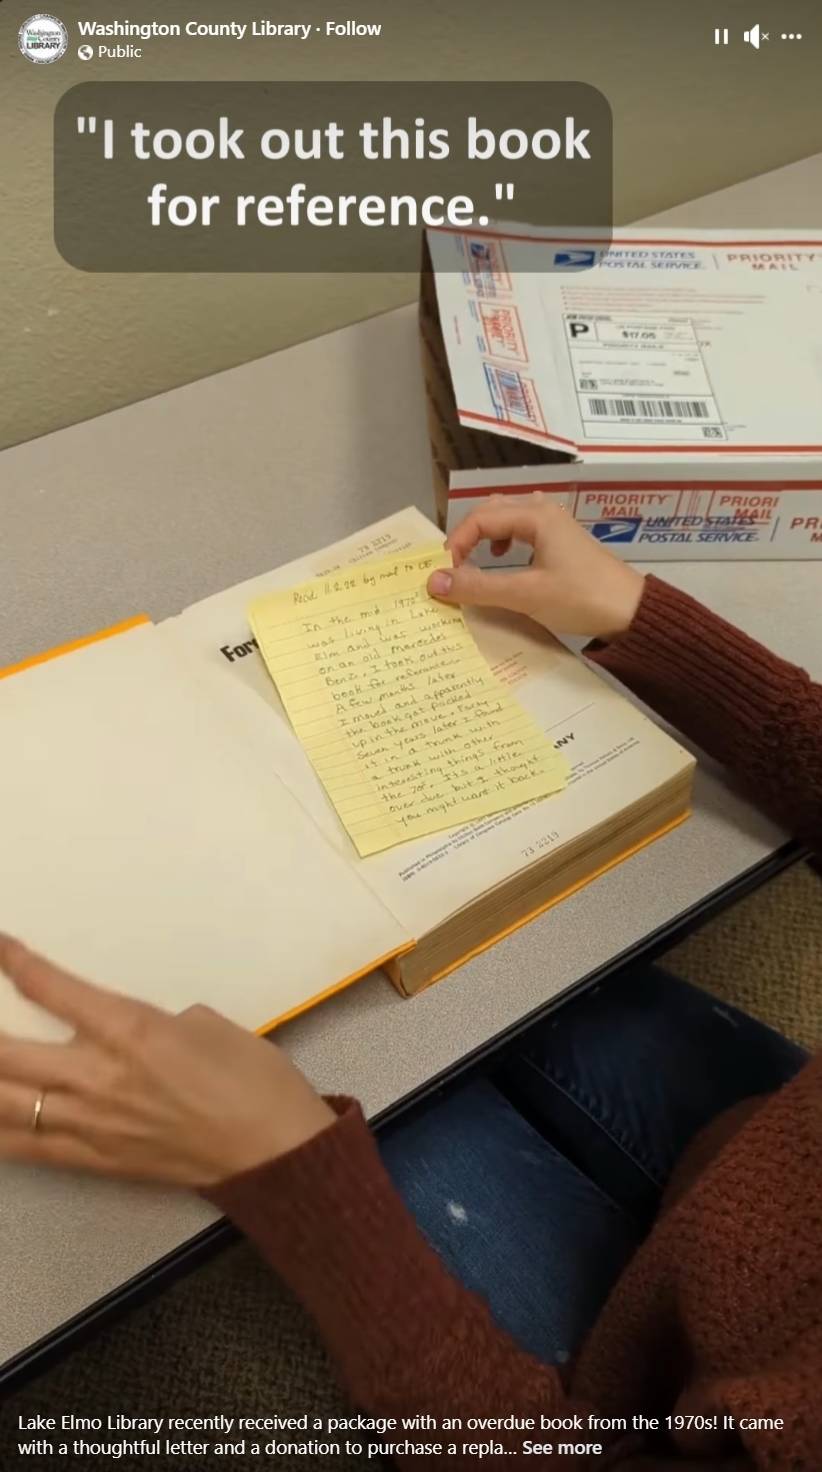 Washington County Library · Follow
Public
"I took out this book
for reference."
UNITED STATES
POSTAL SERVICE
PRIORITY
MAIL
P
$17.05
PRIORITY
MAIL
PRIORI
MAIL
UNITED STATES
POSTAL SERVICE
73 2219
Recd 11.2.22 by mail to
In the mid 1970s
was living in Lake
Elmo and was working
on an old Mercedes
Benz. I took out this
book for reference.
A few months later
I moved and apparently
the book got packed
up in the move. Forty
Seven years later I found
it in a trunk with
a trunk with other
interesting things from
the 70s. Its a little
over due but I thought
you might want it back.
73 2219
Lake Elmo Library recently received a package with an overdue book from the 1970s! It came
with a thoughtful letter and a donation to purchase a repla... See more